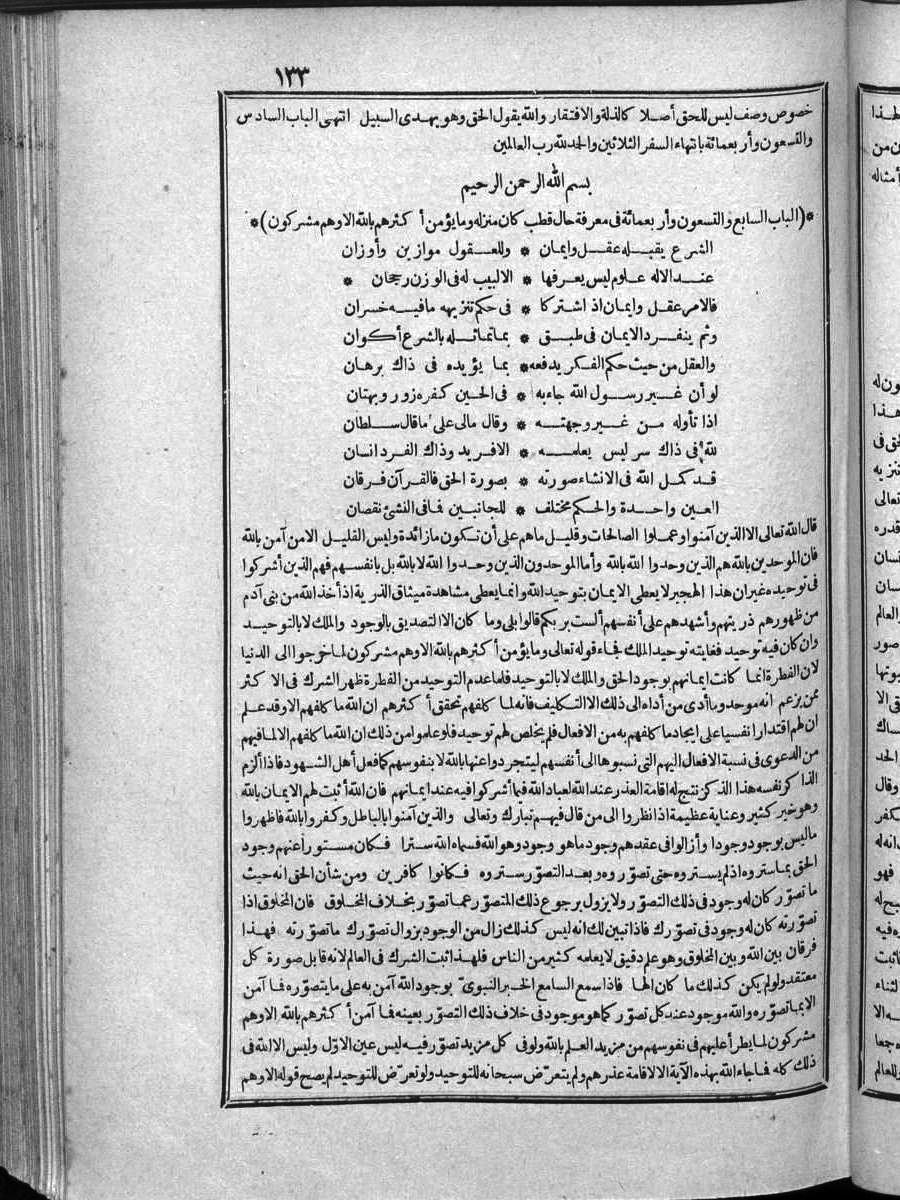 ١٣٣
خصوص وصف ليس للحق أصلا كالذلة والافتقار والله يقول الحق وهو يهدى السبيل انتهى الباب السادس
والتسعون وأربعمائة بانتهاء السفر الثلاثين والحمد لله رب العالمين
بسم الله الرحمن الرحيم
*(الباب السابع والتسعون وأربعمائة فى معرفة حال قطب كان منزله وما يؤمن أكثرهم بالله الا وهم مشركون)*
الشرع يقبله عقل وايمان * وللعقول موازين وأوزان
عند الاله علوم ليس يعرفها * الا لبيب له فى الوزن رجحان *
فالامر عقل وايمان اذ اشتركا * فى حكم تنزيهه ما فيه خسران
وثم ينفرد الايمان فى طبق * بما تماثله بالشرع أكوان
والعقل من حيث حكم الفكر يدفعه * بما يؤيده فى ذاك برهان
لو أن غير رسول الله جاء به * فى الحين كفره زور وبهتان
اذا تأوله من غير وجهته * وقال مالى على ما قال سلطان
لله فى ذاك سر ليس يعلمه * الا فريد وذاك الفرد انسان
قد كمل الله فى الانشاء صورته * بصورة الحق فالقرآن فرقان
العين واحدة والحكم مختلف * للجانبين فما فى النشئ نقصان
قال الله تعالى الا الذين آمنوا وعملوا الصالحات وقليل ما هم على أن تكون ما زائدة وليس القليل الا من آمن بالله
فان الموحدين بالله هم الذين وحدوا الله بالله وأما الموحدون الذين وحدوا الله لا بالله بل بانفسهم فهم الذين أشركوا
فى توحيده غير ان هذا الهجير لا يعطى الايمان بتوحيد الله وانما يعطى مشاهدة ميثاق الذرية اذ أخذ الله من بنى آدم
من ظهورهم ذريتهم وأشهدهم على أنفسهم ألست بربكم قالوا بلى وما كان الا التصديق بالوجود والملك لا بالتوحيد
وان كان فيه توحيد فغايته توحيد الملك فجاء قوله تعالى وما يؤمن أكثرهم بالله الا وهم مشركون لما خرجوا الى الدنيا
لان الفطرة انما كانت ايمانهم بوجود الحق والملك لا بالتوحيد فلما عدم التوحيد من الفطرة ظهر الشرك فى الاكثر
ممن يزعم انه موحد وما أدى من أداه الى ذلك الا التكليف فانه لما كلفهم تحقق أكثرهم ان الله ما كلفهم الا وقد علم
ان لهم اقتدارا نفسيا على ايجاد ما كلفهم به من الافعال فلم يخلص لهم توحيد فلو علموا من ذلك ان الله ما كلفهم الا لما فيهم
من الدعوى فى نسبة الافعال اليهم التى نسبوها الى أنفسهم ليتجردوا عنها بالله لا بنفوسهم كما فعل أهل الشهود فاذا ألزم
الذاكر نفسه هذا الذكر نتج له اقامة العذر عند الله لعباد الله فيما أشركوا فيه عند ايمانهم فان الله أثبت لهم الايمان بالله
وهو خير كثير وعناية عظيمة اذا نظروا الى من قال فيهم تبارك وتعالى والذين آمنوا بالباطل وكفروا بالله فاظهروا
ما ليس بوجود وجودا وأزالوا فى عقدهم وجود ما هو وجود وهو الله فسماه الله سترا فكان مستورا عنهم وجود
الحق بما ستروه اذ لم يستروه حتى تصوّروه وبعد التصوّر ستروه فكانوا كافرين ومن شأن الحق انه حيث
ما تصوّر كان له وجود فى ذلك التصوّر ولا يزول برجوع ذلك المتصوّر عما تصوّر بخلاف المخلوق فان المخلوق اذا
تصوّرته كان له وجود فى تصوّرك فاذا تبين لك انه ليس كذلك زال من الوجود بزوال تصوّرك ما تصوّرته فهذا
فرقان بين الله وبين المخلوق وهو علم دقيق لا يعلمه كثير من الناس فلهذا ثبت الشرك فى العالم لانه قابل صورة كل
معتقد ولو لم يكن كذلك ما كان الها فاذا سمع السامع الخبر النبوىّ بوجود الله آمن به على ما يتصوّره فما آمن
الا بما تصوّره والله موجود عند كل تصوّر كما هو موجود فى خلاف ذلك التصوّر بعينه فما آمن أكثرهم بالله الا وهم
مشركون لما يطرأ عليهم فى نفوسهم من مزيد العلم بالله ولو فى كل مزيد تصوّر فيه ليس عين الاوّل وليس الا الله فى
ذلك كله فما جاء الله بهذه الآية الا لاقامة عذرهم ولم يتعرّض سبحانه للتوحيد ولو تعرّض للتوحيد لم يصح قوله الا وهم